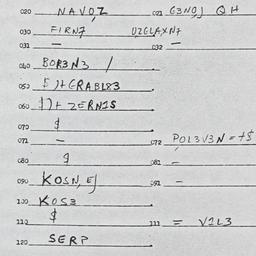 020 NAVO,Z 021 G3NO,J QH
030 FIRN7 UZGLAXN7
031 — 032 —
040 BOR3N3 /
050 5)+GRABL83
060 $)+ ZERN1S
070 $
071 — 072 POL3V3N=+5
080 9 081 —
090 KOSN,EJ 091 —
100 KOS3
110 $ 111 = V1L3
120 SERP